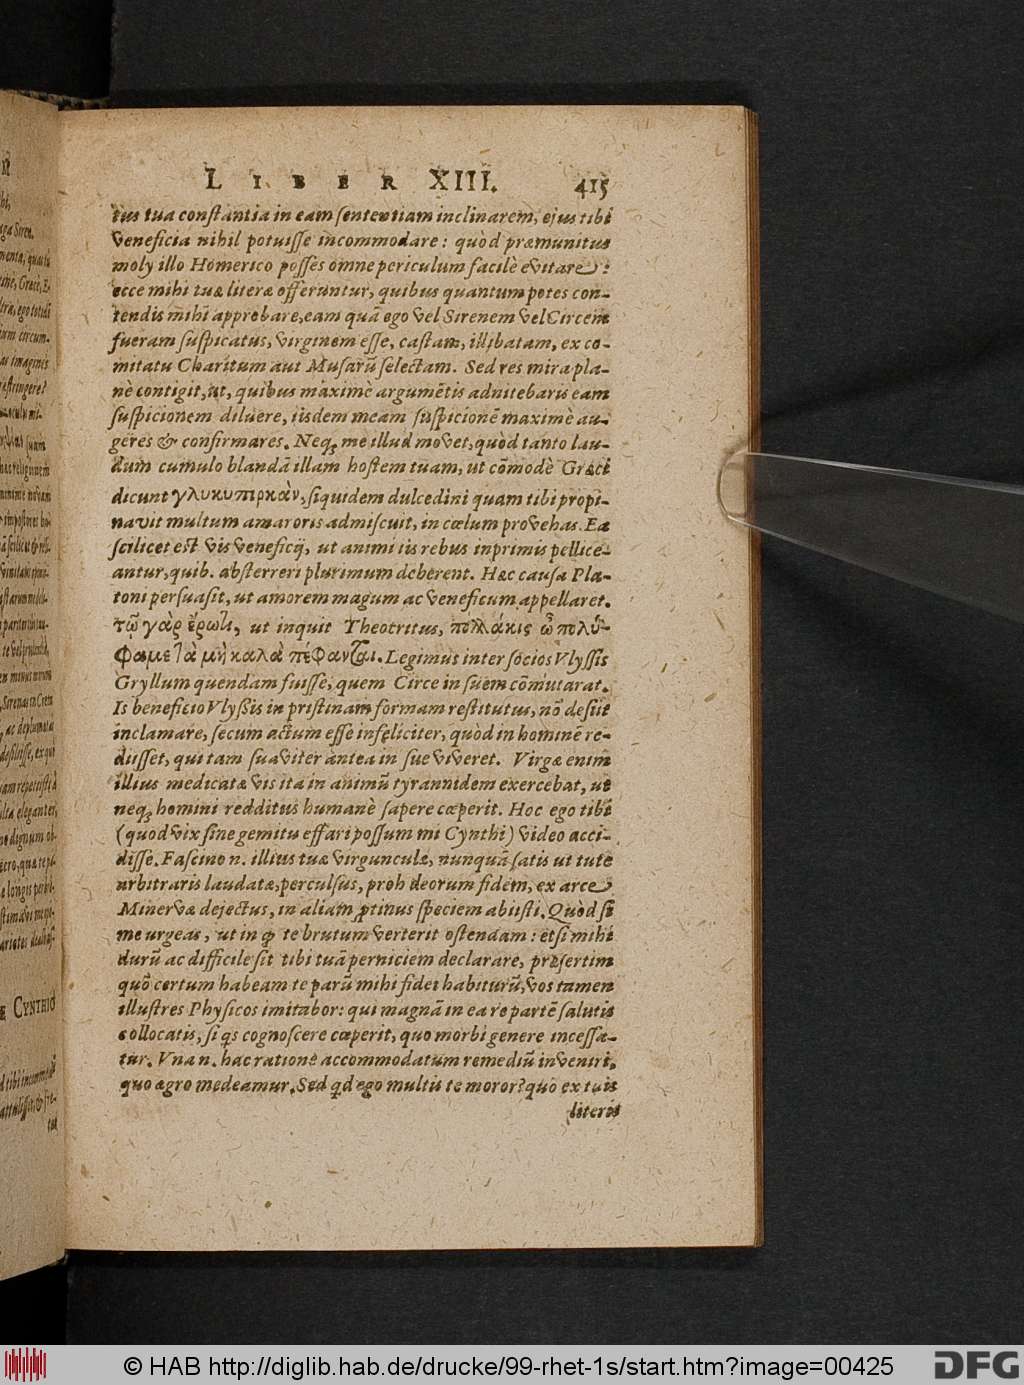 LIBER XIII. 415
tus tua constantia in eam sententiam inclinarem, ejus tibi
veneficia nihil potuisse incommodare: quòd præmunitus
moly illo Homerico posses omne periculum facilè evitare:
ecce mihi tuæ literæ offeruntur, quibus quantum potes con-
tendis mihi approbare, eam quã ego vel Sirenem vel Circem
fueram suspicatus, virginem esse, castam, illibatam, ex co-
mitatu Charitum aut Musarũ selectam. Sed res mira pla-
nè contigit, ut, quibus maximè argumẽtis adnitebaris eam
suspicionem diluere, iisdem meam suspicionẽ maximè au-
geres & confirmares. Neq; me illud movet, quòd tanto lau-
dum cumulo blandã illam hostem tuam, ut cõmodè Græci
dicunt γλυκυπικρὰν, siquidem dulcedini quam tibi propi-
navit multum amaroris admiscuit, in cœlum provehas. Ea
scilicet est vis veneficij, ut animi iis rebus inprimis pellice-
antur, quib. absterreri plurimum deberent. Hæc causa Pla-
toni persuasit, ut amorem magum ac veneficum appellaret.
τῷ γὰρ ἔρωτι, ut inquit Theotritus, πολλάκις ὦ πολύ-
φαμε τὰ μὴ καλὰ πέφανται. Legimus inter socios Vlyssis
Gryllum quendam fuisse, quem Circe in suem cõmutarat.
Is beneficio Vlyssis in pristinam formam restitutus, nõ desiit
inclamare, secum actum esse infeliciter, quòd in hominẽ re-
diisset, qui tam suaviter antea in sue viveret. Virgæ enim
illius medicatæ vis ita in animũ tyrannidem exercebat, ut
neq; homini redditus humanè sapere cœperit. Hoc ego tibi
(quod vix sine gemitu effari possum mi Cynthi) video acci-
disse. Fascino n. illius tuæ virgunculæ, nunquã satis ut tute
arbitraris laudatæ, perculsus, proh deorum fidem, ex arce
Minervæ dejectus, in aliam ꝓtinus speciem abiisti. Quòd si
me urgeas, ut in q̃ te brutum verterit ostendam: etsi mihi
durũ ac difficile sit tibi tuã perniciem declarare, præsertim
quõ certum habeam te parũ mihi fidei habiturũ, vos tamen
illustres Physicos imitabor: qui magnã in ea re partẽ salutis
collocatis, si qs cognoscere cœperit, quo morbi genere incessa-
tur. Vna n. hac ratione accommodatum remediũ inveniri,
quo ægro medeamur. Sed qd ego multis te moror? quò ex tuis
literis
© HAB http://diglib.hab.de/drucke/99-rhet-1s/start.htm?image=00425
DFG